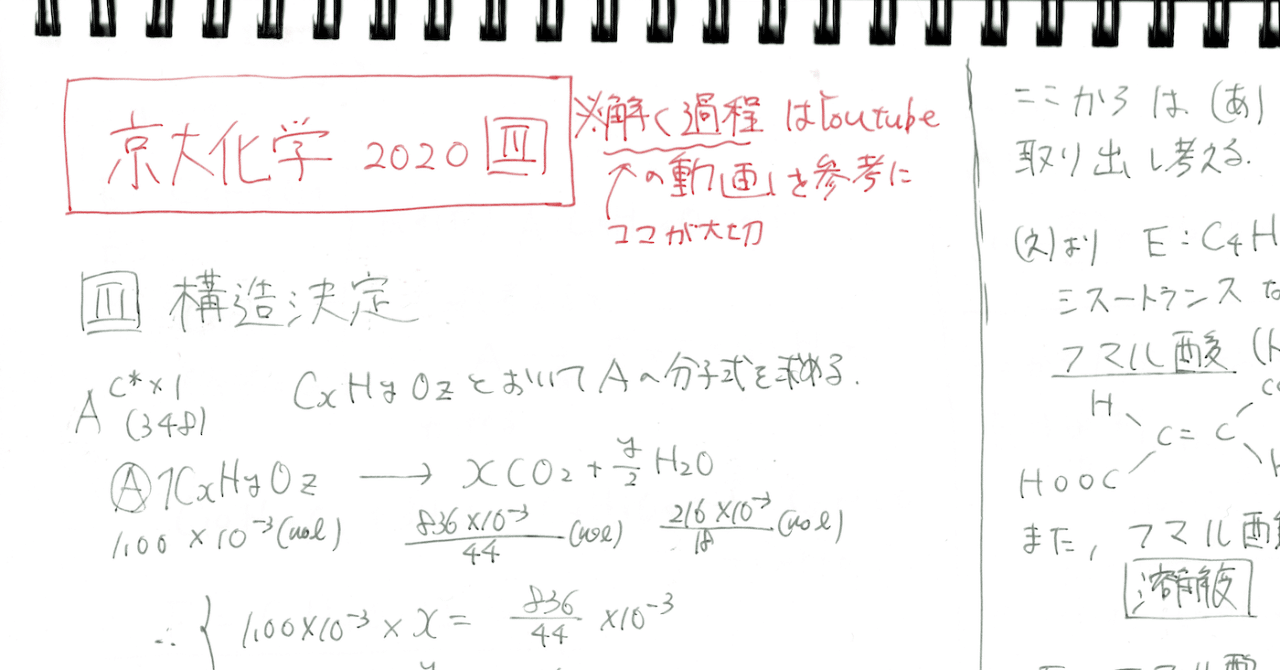 京大化学 2020 Ⅲ
※解く過程はYoutube
↑の動画を参考に
ココが大切
Ⅲ 構造決定
A C*×1
(348)
CxHyOzとおいてAの分子式を求める.
Ⓐ 1CxHyOz → xCO2 + y/2 H2O
1.00×10⁻³(mol) 836×10⁻³/44 (mol) 216×10⁻³/18 (mol)
∴ { 1.00×10⁻³×x = 836/44 ×10⁻³
ここからは(あ)
取り出し考える.
(え)より E:C4H
シスートランス
フマル酸
H
C=C
HOOC
また, フマル酸
溶解度